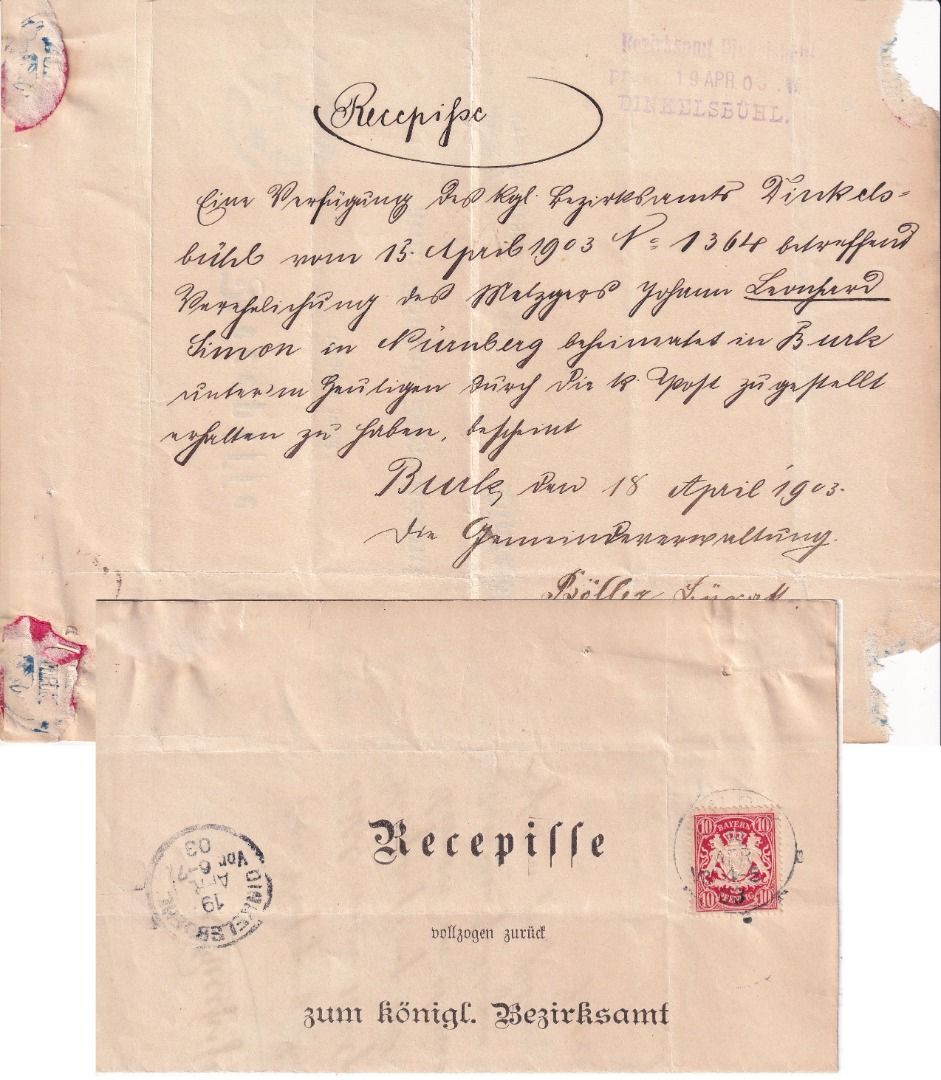 Bezirksamt Dinkelsbühl
19 APR. 03
DINKELSBÜHL.
Recepisse
Eine Verfügung des kgl. Bezirksamts Dinkels-
bühl vom 15. April 1903 No 1364 betreffend
Verehelichung des Metzgers Johann Leonhard
Simon in Nürnberg beheimatet in Burk
unter'm Heutigen durch die k. Post zugestellt
erhalten zu haben, bescheint
Burk, den 18 April 1903.
Die Gemeindeverwaltung.
Recepisse
vollzogen zurück
zum königl. Bezirksamt
DINKELSBÜHL
19
APR
Vor 6-7
03
10 BAYERN 10
10 10